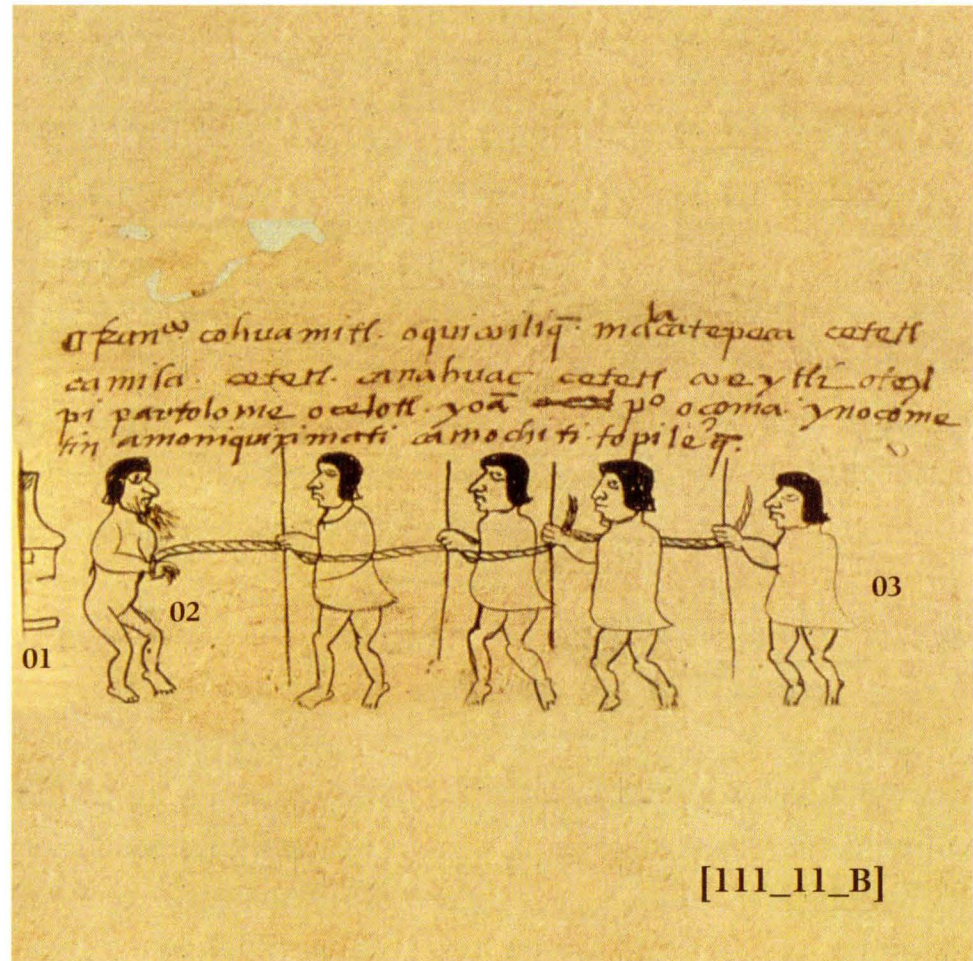 ¶ franco cohuamitl. oquicuiliq̄. macatepeca cetetl
la
camisa. cetetl. canahuac cetetl cueytli oteyl
pi partolome ocelotl. yoā po ocoma. ynocome
tin amoniquiximati camochiti topileq̄.
01
02
03
[111_11_B]